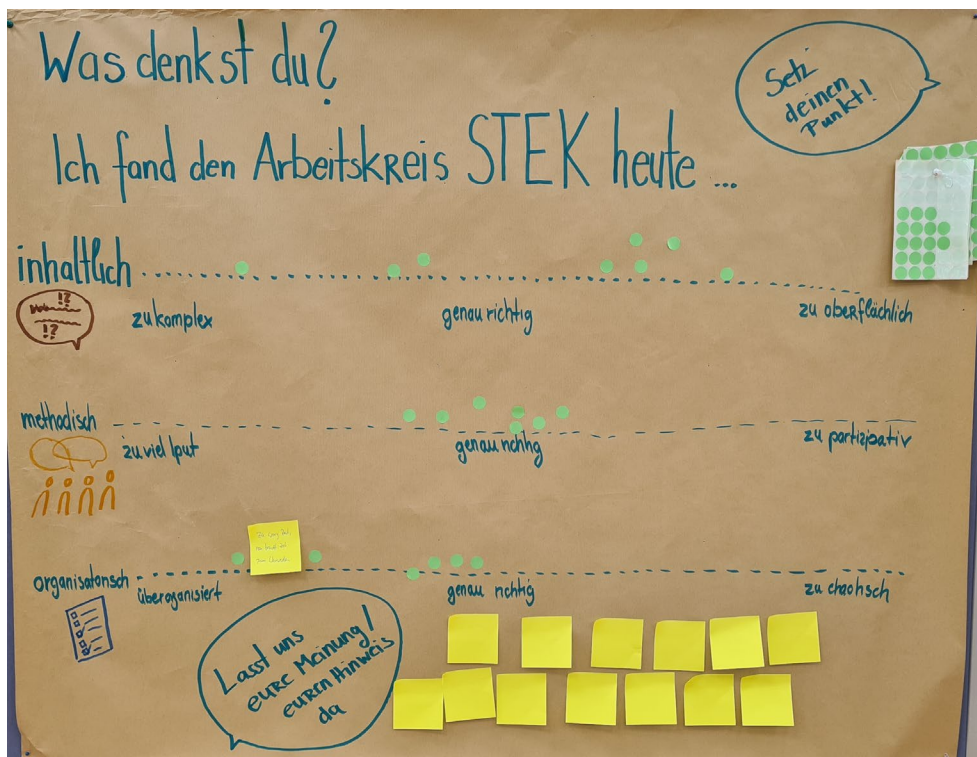 Was denkst du?
Setz'
deinen
Punkt!
Ich fand den Arbeitskreis STEK heute ...
inhaltlich
!?
!?
zu komplex genau richtig zu oberflächlich
methodisch
zu viel Iput genau richtig zu partizipativ
organisatorisch
überoganisiert genau richtig zu chaotisch
Lasst uns
eure Meinung /
euren Hinweis
da